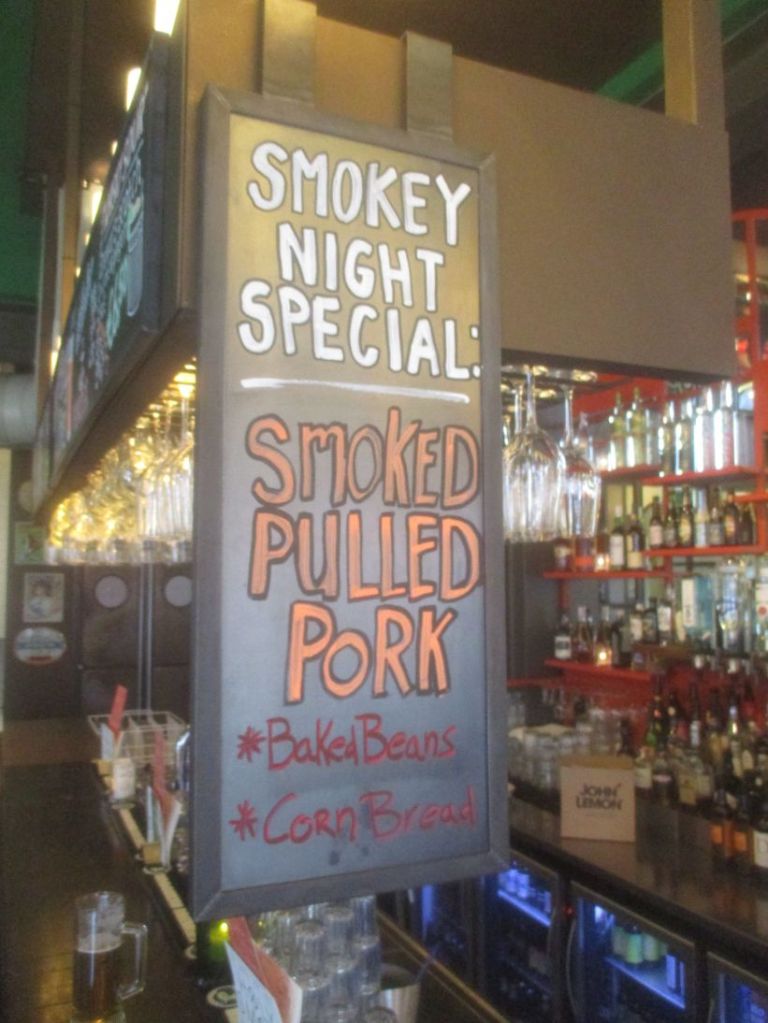 SMOKEY
NIGHT
SPECIAL:
SMOKED
PULLED
PORK
*Baked Beans
*Corn Bread
JOHN
LEMON